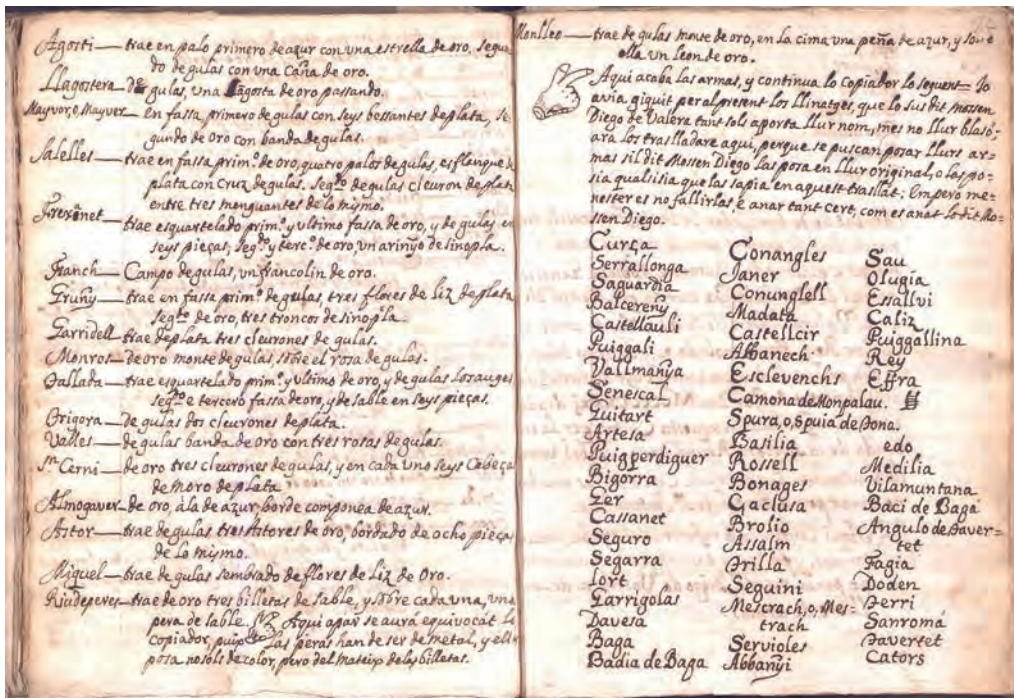 Agosti — trae en palo primero de azur con una estrella de oro, segun
do de gulas con una Caña de oro.
Llagostera — de gulas, una Lagosta de oro passando.
Mayvor, o, Mayver — en fassa, primero de gulas con seys bessantes de plata, se
gundo de Oro con banda de gulas.
Salelles — trae en fassa prim.º de oro, quatro palos de gulas, es flenque de
plata con Cruz de gulas. seg.do de gulas cleuron de plata
entre tres menguantes de lo mismo.
Frexanet — trae esquartelado prim.º y ultimo fassa de oro, y de gulas en
seys pieças, seg.do y terc.º de oro un ariñyo de sinopla.
Franch — Campo de gulas, un francolin de oro.
Gruñy — trae en fassa prim.º de gulas, tres flores de Liz de plata
seg.do de oro, tres troncos de sinopla.
Garridell — trae de plata tres cleurones de gulas.
Monros — de oro monte de gulas sobre el rosa de gulas.
Dallada — trae esquartelado prim.º y ultimo de oro, y de gulas Losanges
seg.do e tercero fassa de oro, y de sable en seys pieças.
Brigora — de gulas dos cleurones de plata.
Valles — de gulas banda de oro con tres rosas de gulas.
S.n Cerni — de oro tres cleurones de gulas, y en cada uno seys Cabeças
de moro de plata
Almogaver — de oro, ála de azur borde componea de azur.
Astor — trae de gulas tres Astores de oro, bordado de ocho pieças
de lo mismo.
Miquel — trae de gulas sembrado de flores de Liz de Oro.
Riudeperes — trae de oro tres billetas de sable, y sobre cada una, una
pera de sable. Aqui apar se aura equivocat lo
copiador, puix Las peras han de ser de metal, y ell
posa nosols de color, pero del mateix de las billetas.
Monlleo — trae de gulas monte de oro, en la cima una peña de azur, y sobre
ella un leon de oro.
Aqui acaba las armas, y continua lo Copiador lo seguent = Jo
avia giquit per al present los Llinatges, que lo sus dit Mossen
Diego de Valera tant sols aporta llur nom, mes no llur blasó,
ara los traslladare aqui, perque se puscan posar Llurs ar=
mas si l dit Mossen Diego las posa en llur original, o las po=
sia qualsisia que las sapia en aquest trasllat; Empero me=
nester es no fallirlas, e anar tant cert, com es anat lo dit Mo=
ssen Diego.
Curça
Serrallonga
Saguardia
Balcereñy
Castellauli
Puiggali
Vallmañya
Senescal
Guitart
Artesa
Puigperdiguer
Bigorra
Ger
Cassanet
Seguro
Segarra
Jort
Garrigolas
Davesa
Baga
Badia de Baga
Conangles
Janer
Conunglell
Madata
Castellcir
Albanech
Esclevenchs
Camona de Monpalau.
Spura, o, Spuia de Dona.
Basilia
Rossell
Bonages
Gaclusa
Brolio
Assalm
Orilla
Seguini
Mescrach, o, Mes=
trach
Servioles
Abbanyi
Sau
Olugia
Essallvi
Caliz
Puiggallina
Rey
Effra
edo
Medilia
Vilamuntana
Baci de Baga
Angulo de Taver=
tet
Fagia
Doden
Terri
Sanromá
Tavertet
Cators